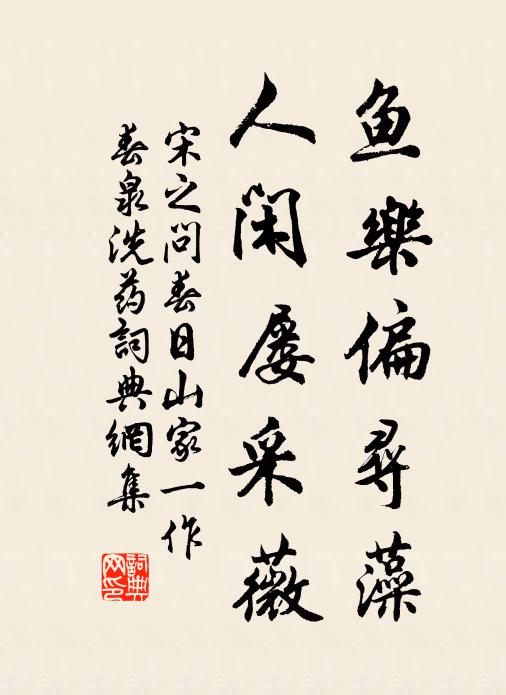 鱼樂偏尋藻
人闲屡采薇
宋之问春日山家一作
春泉洗药詞典網集
詞典
网印